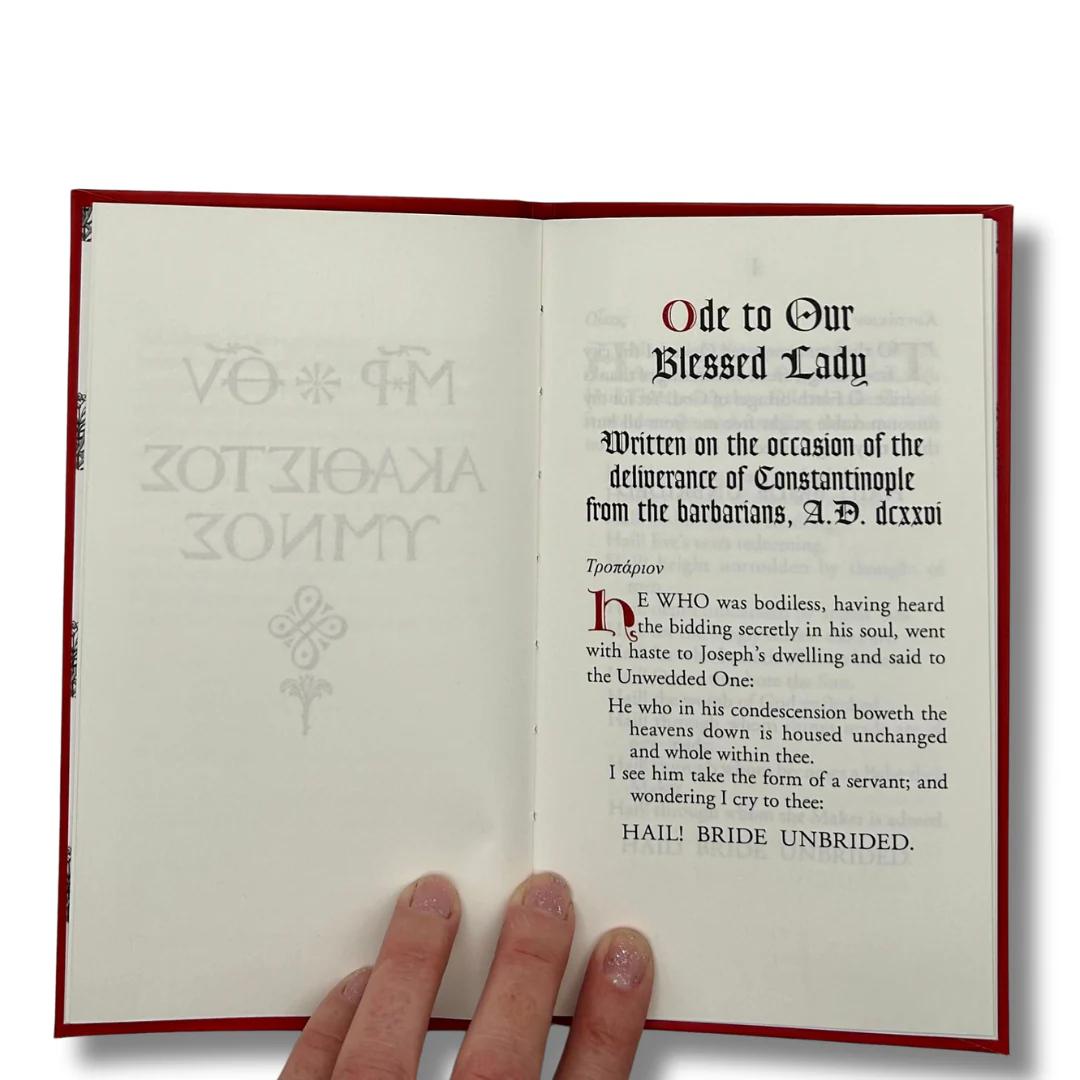 ΜΡ * ΘΥ
ΑΚΑΘΙΣΤΟΣ
ΥΜΝΟΣ
Ode to Our
Blessed Lady
Written on the occasion of the
deliverance of Constantinople
from the barbarians, A.D. dcxxvi
Τροπάριον
HE WHO was bodiless, having heard
the bidding secretly in his soul, went
with haste to Joseph's dwelling and said to
the Unwedded One:
He who in his condescension boweth the
heavens down is housed unchanged
and whole within thee.
I see him take the form of a servant; and
wondering I cry to thee:
HAIL! BRIDE UNBRIDED.